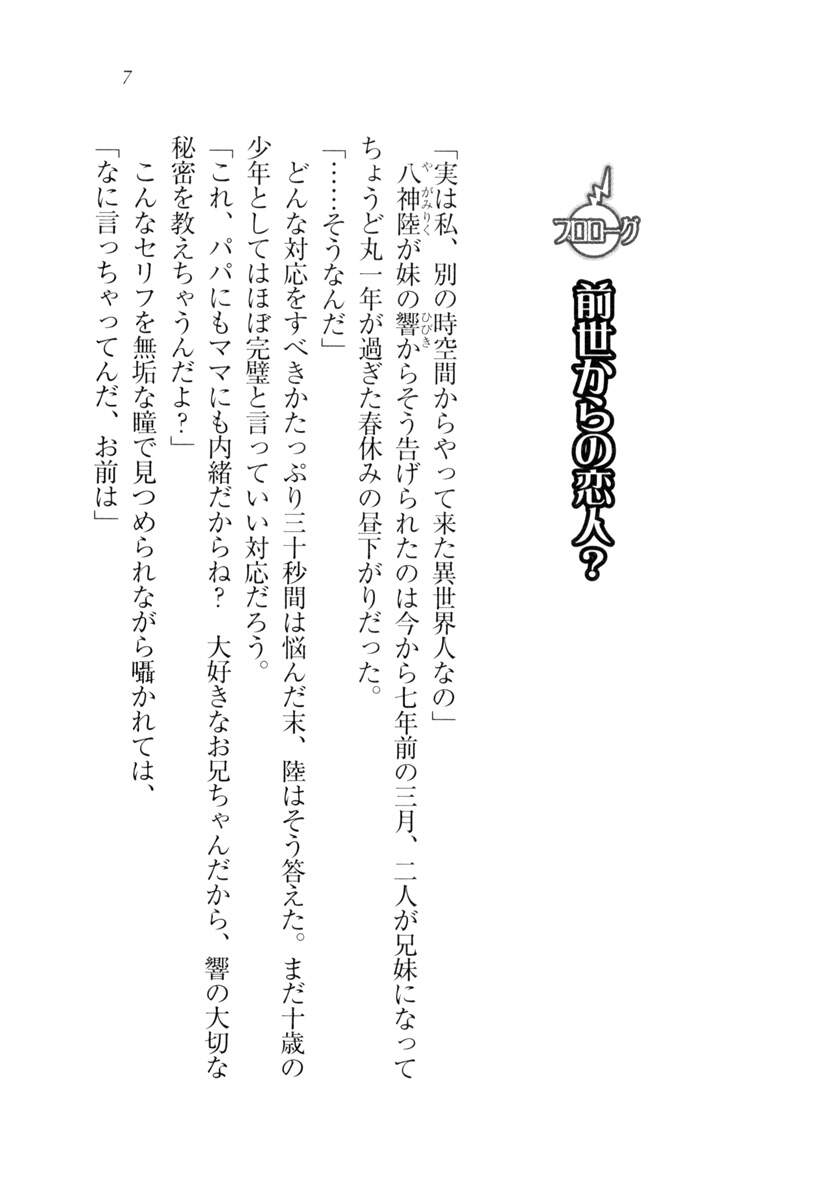 プロローグ
前世からの恋人?
「実は私、別の時空間からやって来た異世界人なの」
八神陸が妹の響からそう告げられたのは今から七年前の三月、二人が兄妹になって
ちょうど丸一年が過ぎた春休みの昼下がりだった。
「……そうなんだ」
どんな対応をすべきかたっぷり三十秒間は悩んだ末、陸はそう答えた。まだ十歳の
少年としてはほぼ完璧と言っていい対応だろう。
「これ、パパにもママにも内緒だからね? 大好きなお兄ちゃんだから、響の大切な
秘密を教えちゃうんだよ?」
こんなセリフを無垢な瞳で見つめられながら囁かれては、
「なに言っちゃってんだ、お前は」
7